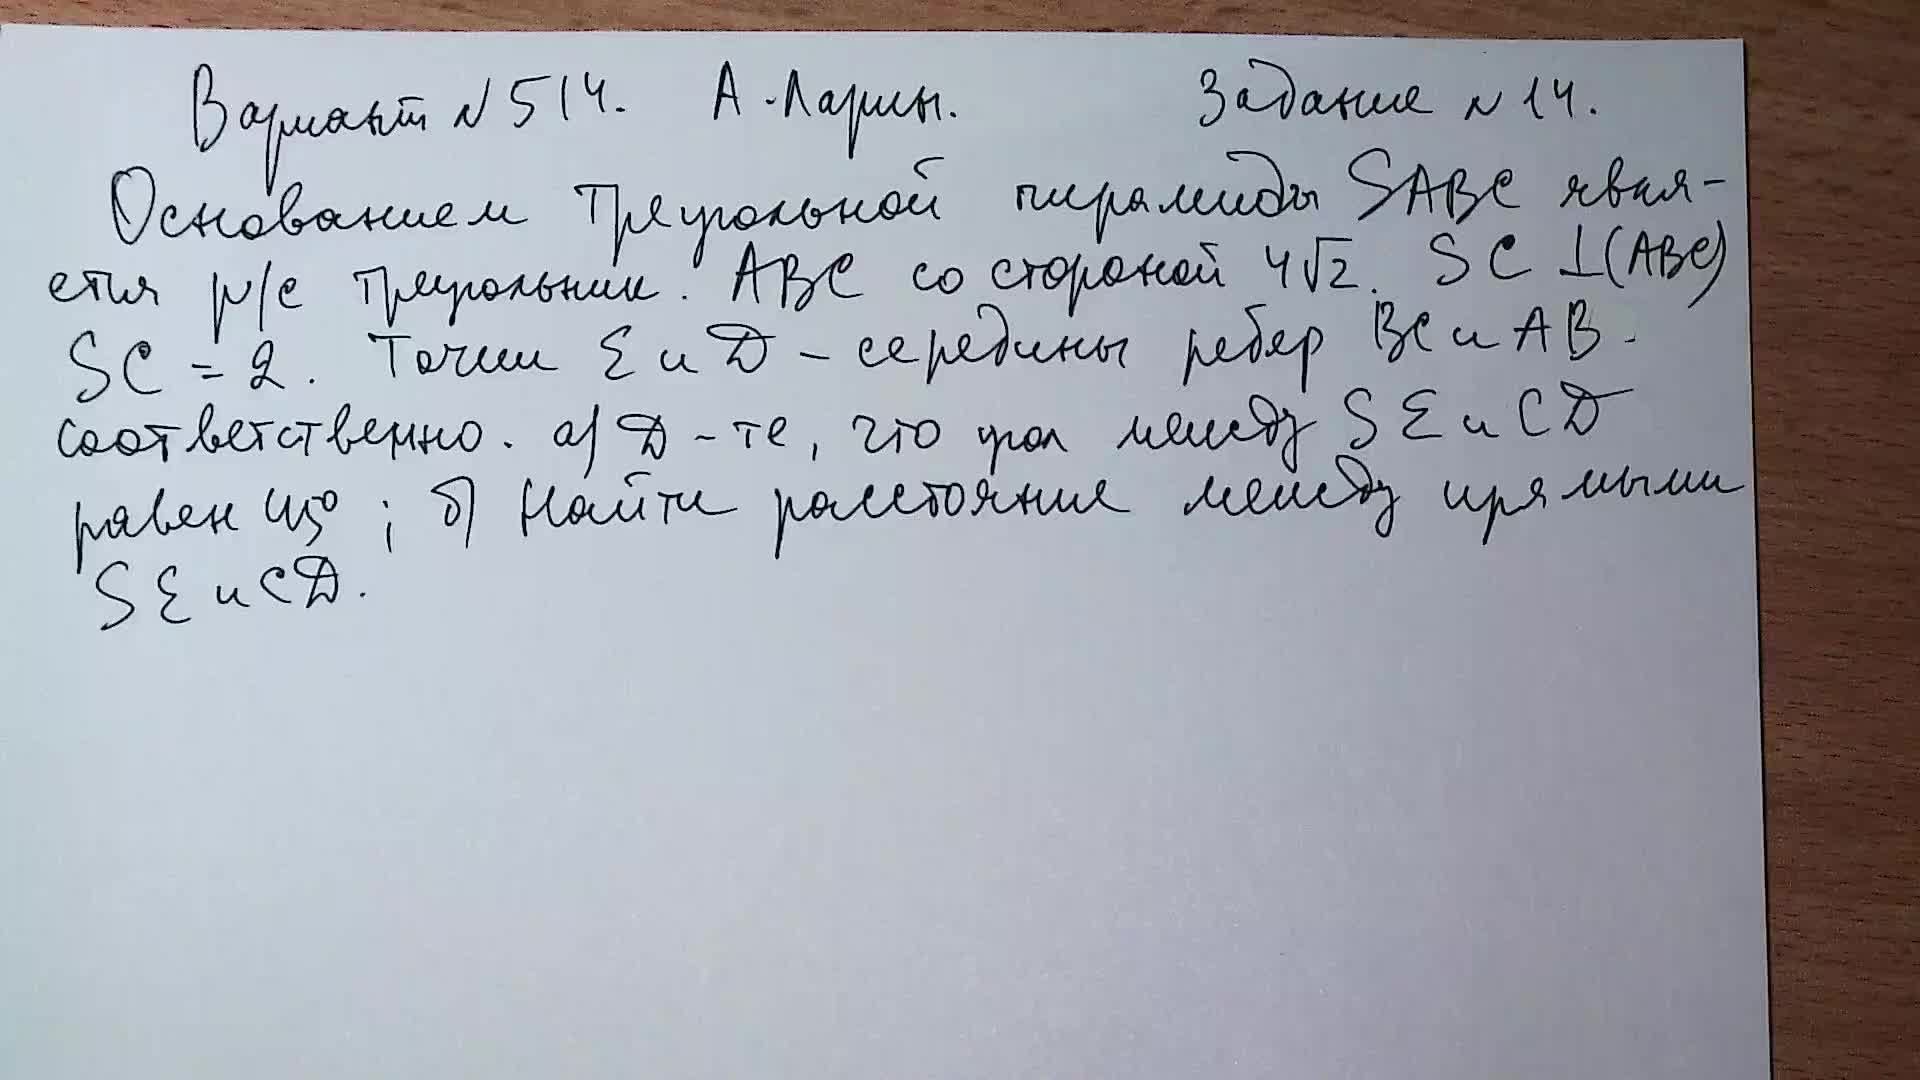 Вариант №514. А. Ларин. Задание №14.
Основанием треугольной пирамиды SABC явля-
ется р/с треугольник. ABC со стороной 4√2. SC ⊥ (ABC)
SC = 2. Точки E и D – середины ребер BC и AB.
соответственно. а) D-те, что угол между SE и CD
равен 45°; б) Найти расстояние между прямыми
SE и CD.